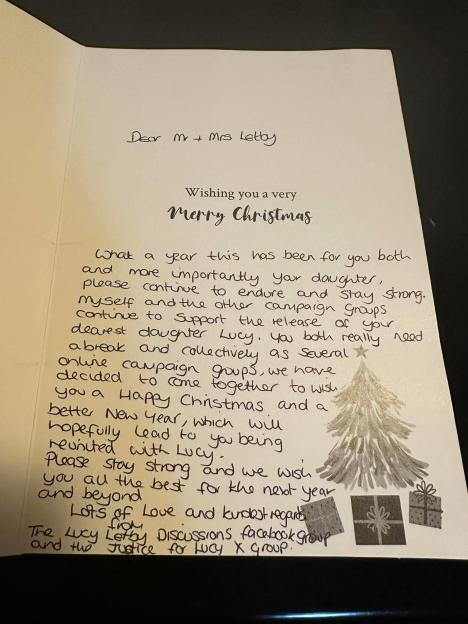 Dear Mr + Mrs Letby
Wishing you a very
Merry Christmas
What a year this has been for you both
and more importantly your daughter,
please continue to endure and stay strong.
Myself and the other campaign groups
continue to support the release of your
dearest daughter Lucy. You both really need
a break and collectively as several
online campaign groups, we have
decided to come together to wish
you a Happy Christmas and a
better New Year, which will
hopefully lead to you being
reunited with Lucy.
Please stay strong and we wish
you all the best for the next year
and beyond
Lots of Love and kindest regards
from
The Lucy Letby Discussions facebook group
and the Justice for Lucy X group.